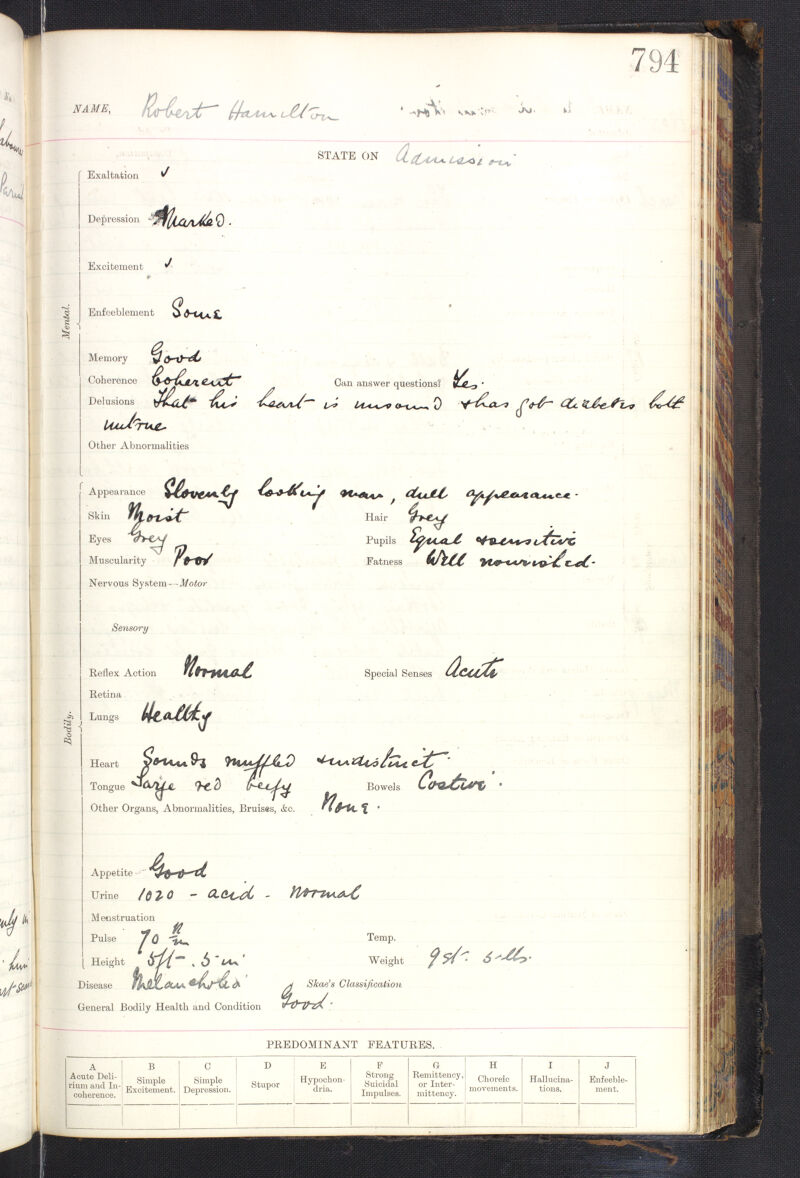 794
NAME, Robert Hamilton
STATE ON Admission
Mental.
Exaltation ✓
Depression Marked.
Excitement ✓
Enfeeblement Some
Memory Good
Coherence Coherent Can answer questions? Yes.
Delusions That his heart is unsound & has got diabetes both
untrue
Other Abnormalities
Bodily.
Appearance Slovenly looking man, dull appearance.
Skin Moist Hair Grey
Eyes Grey Pupils Equal & sensitive
Muscularity Poor Fatness Well nourished.
Nervous System—Motor
Sensory
Reflex Action Normal Special Senses Acute
Retina
Lungs Healthy
Heart Sounds muffled & indistinct.
Tongue Large red beefy Bowels Costive.
Other Organs, Abnormalities, Bruises, &c. None.
Appetite Good
Urine 1020 - acid - normal
Menstruation
Pulse 70 Temp.
Height 5ft. 5 in Weight 9 st. 5 lbs.
Disease Melancholia Skae's Classification
General Bodily Health and Condition Good.
PREDOMINANT FEATURES.
A B C D E F G H I J
Acute Deli-
rium and In-
coherence.
Simple
Excitement.
Simple
Depression.
Stupor
Hypochon-
dria.
Strong
Suicidal
Impulses.
Remittency,
or Inter-
mittency.
Choreic
movements.
Hallucina-
tions.
Enfeeble-
ment.